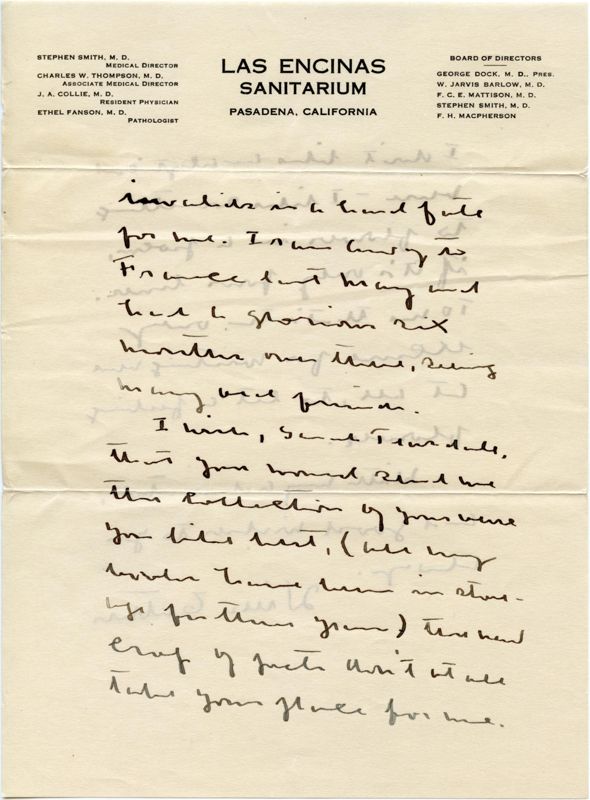 STEPHEN SMITH, M. D.
MEDICAL DIRECTOR
CHARLES W. THOMPSON, M. D.
ASSOCIATE MEDICAL DIRECTOR
J. A. COLLIE, M. D.
RESIDENT PHYSICIAN
ETHEL FANSON, M. D.
PATHOLOGIST
LAS ENCINAS
SANITARIUM
PASADENA, CALIFORNIA
BOARD OF DIRECTORS
GEORGE DOCK, M. D., PRES.
W. JARVIS BARLOW, M. D.
F. C. E. MATTISON, M. D.
STEPHEN SMITH, M. D.
F. H. MACPHERSON
invalids is a hard fate
for me. I ran away to
France last May and
had 6 glorious six
months over there, seeing
many old friends.
I wish, Sara Teasdale,
that you would send me
the collection of your verse
you like best, (all my
books have been in stor-
age for three years) the new
crop of poets don't at all
take your place for me.